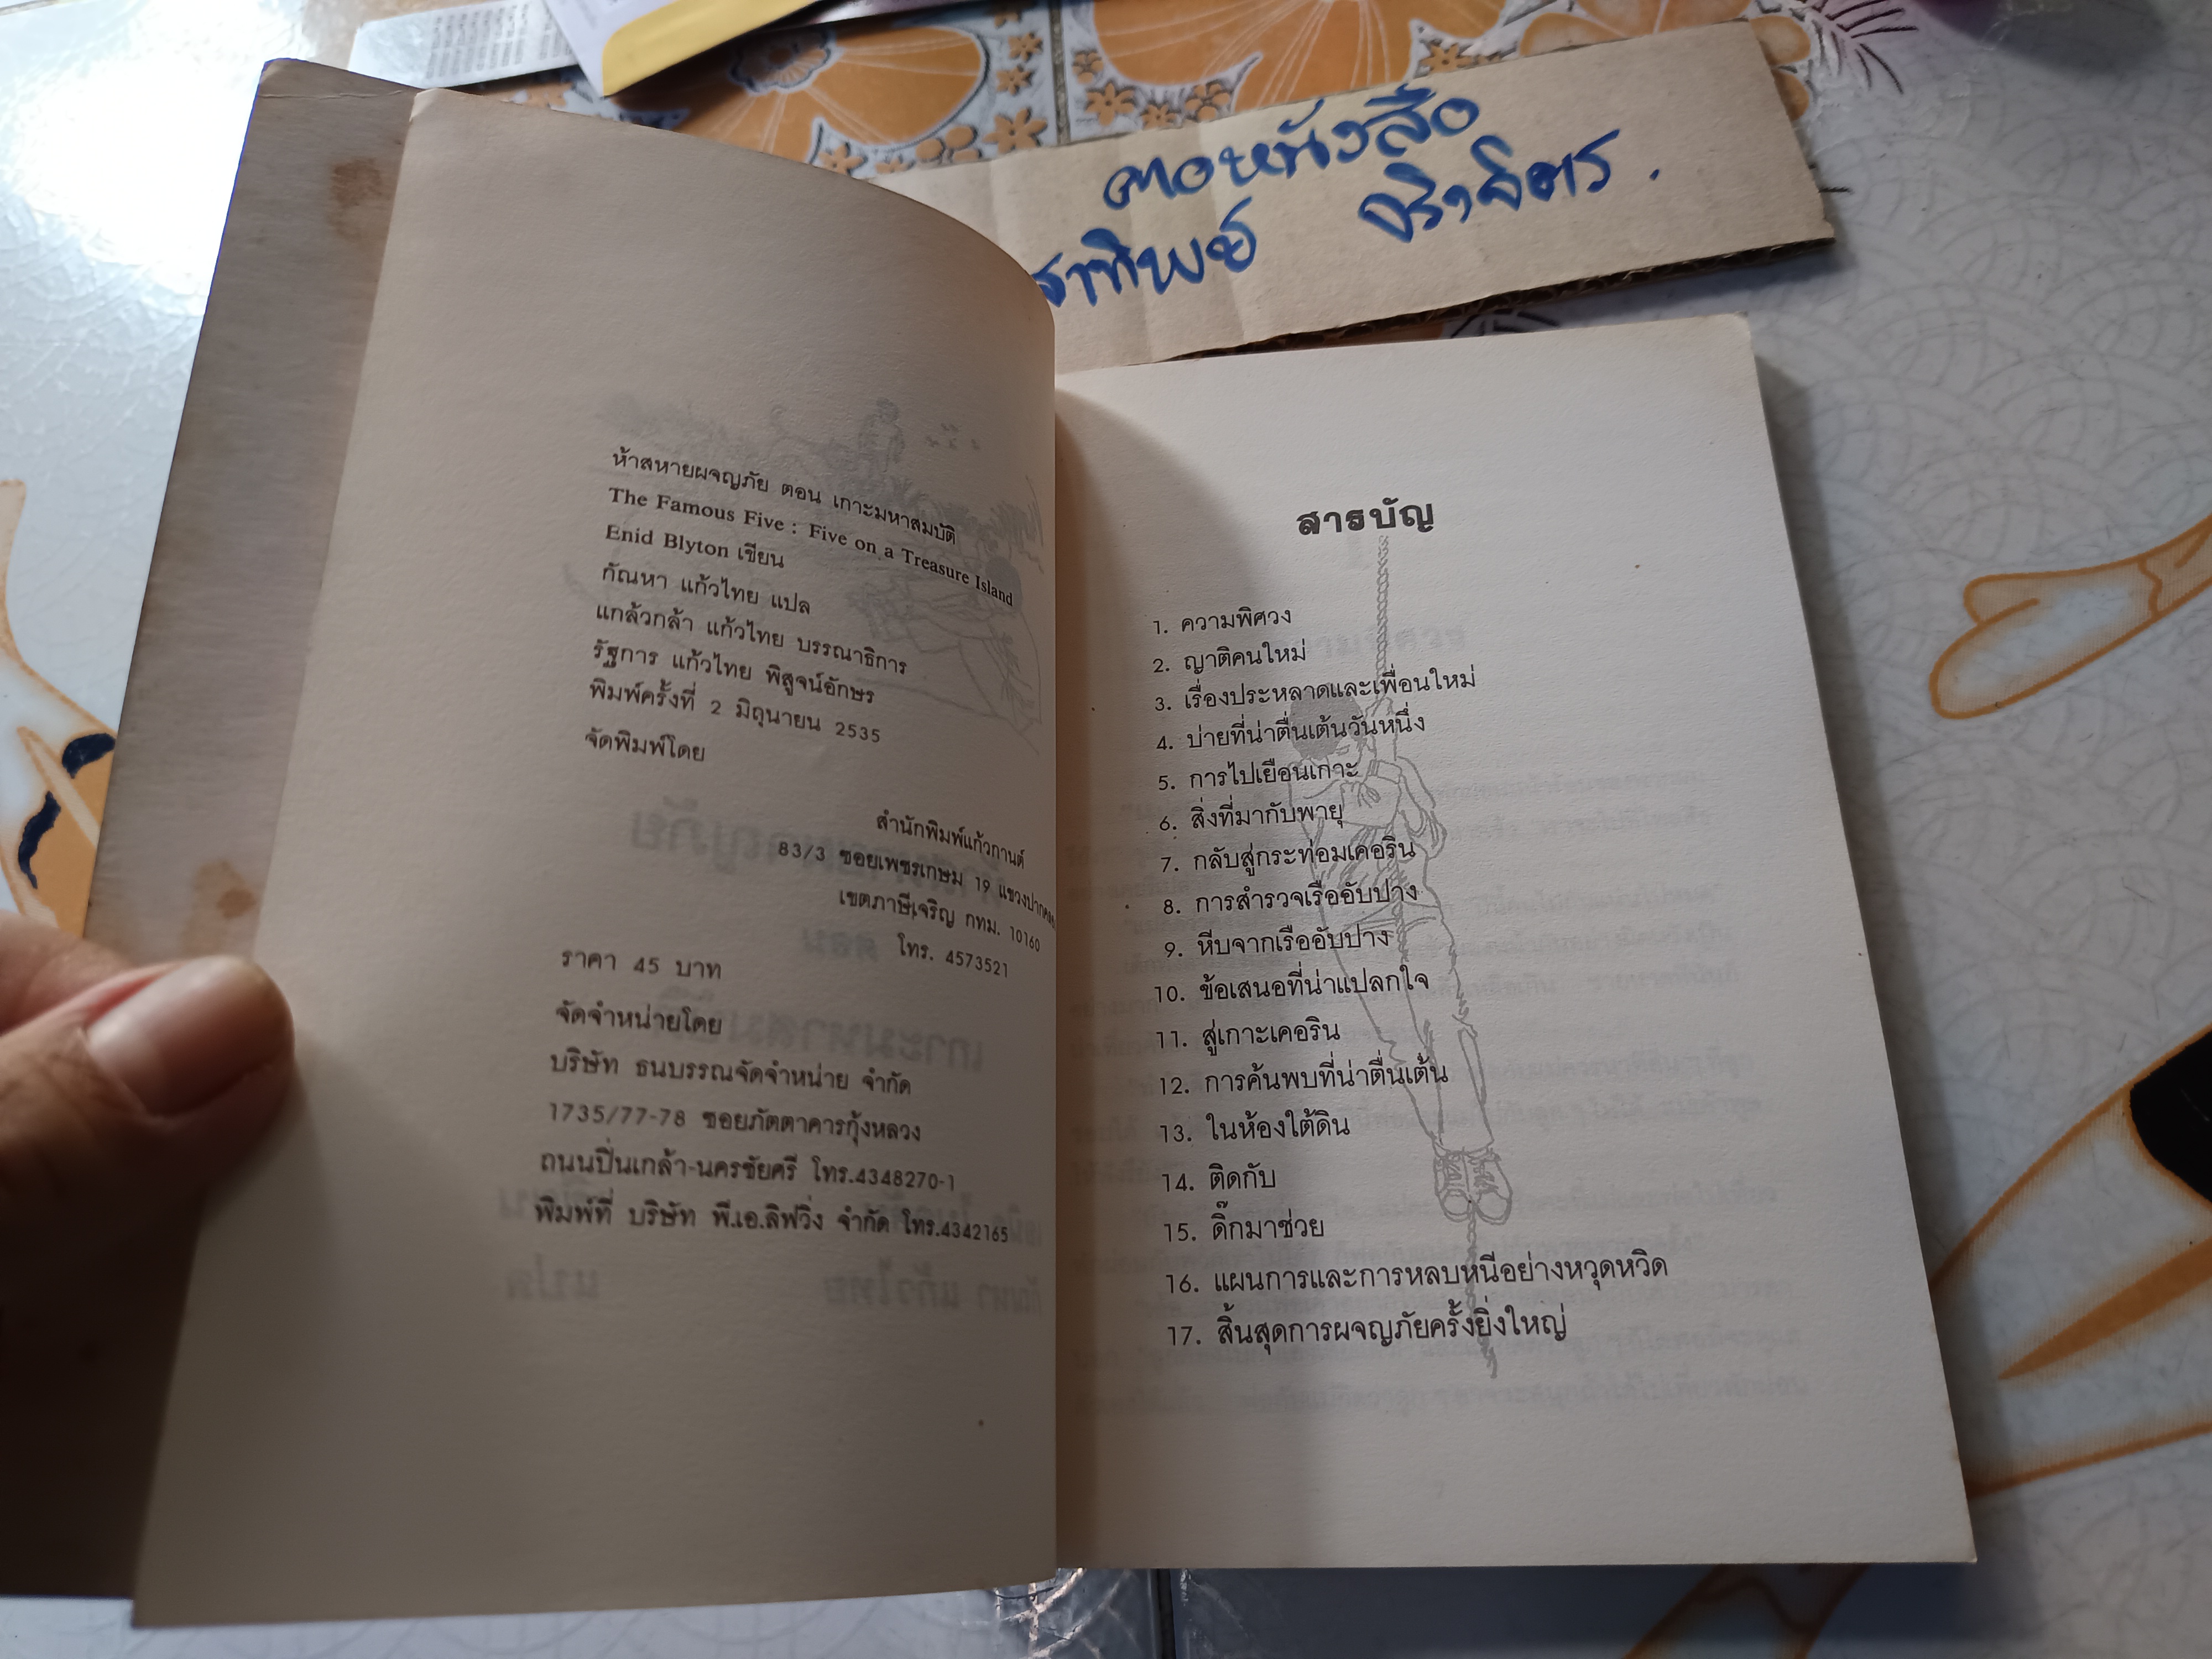 คอหนังสือ
ธาทิพย์ จิราจิตร.
ห้าสหายผจญภัย ตอน เกาะมหาสมบัติ
The Famous Five : Five on a Treasure Island
Enid Blyton เขียน
กัณหา แก้วไทย แปล
แกล้วกล้า แก้วไทย บรรณาธิการ
รัฐการ แก้วไทย พิสูจน์อักษร
พิมพ์ครั้งที่ 2 มิถุนายน 2535
จัดพิมพ์โดย
สำนักพิมพ์แก้วกานต์
83/3 ซอยเพชรเกษม 19 แขวงปากคลอง
เขตภาษีเจริญ กทม. 10160
โทร. 4573521
ราคา 45 บาท
จัดจำหน่ายโดย
บริษัท ธนบรรณจัดจำหน่าย จำกัด
1735/77-78 ซอยภัตตาคารกุ้งหลวง
ถนนปิ่นเกล้า-นครชัยศรี โทร.4348270-1
พิมพ์ที่ บริษัท พี.เอ.ลิฟวิ่ง จำกัด โทร.4342165
สารบัญ
1. ความพิศวง
2. ญาติคนใหม่
3. เรื่องประหลาดและเพื่อนใหม่
4. บ่ายที่น่าตื่นเต้นวันหนึ่ง
5. การไปเยือนเกาะ
6. สิ่งที่มากับพายุ
7. กลับสู่กระท่อมเคอริน
8. การสำรวจเรืออับปาง
9. หีบจากเรืออับปาง
10. ข้อเสนอที่น่าแปลกใจ
11. สู่เกาะเคอริน
12. การค้นพบที่น่าตื่นเต้น
13. ในห้องใต้ดิน
14. ติดกับ
15. ดิ๊กมาช่วย
16. แผนการและการหลบหนีอย่างหวุดหวิด
17. สิ้นสุดการผจญภัยครั้งยิ่งใหญ่